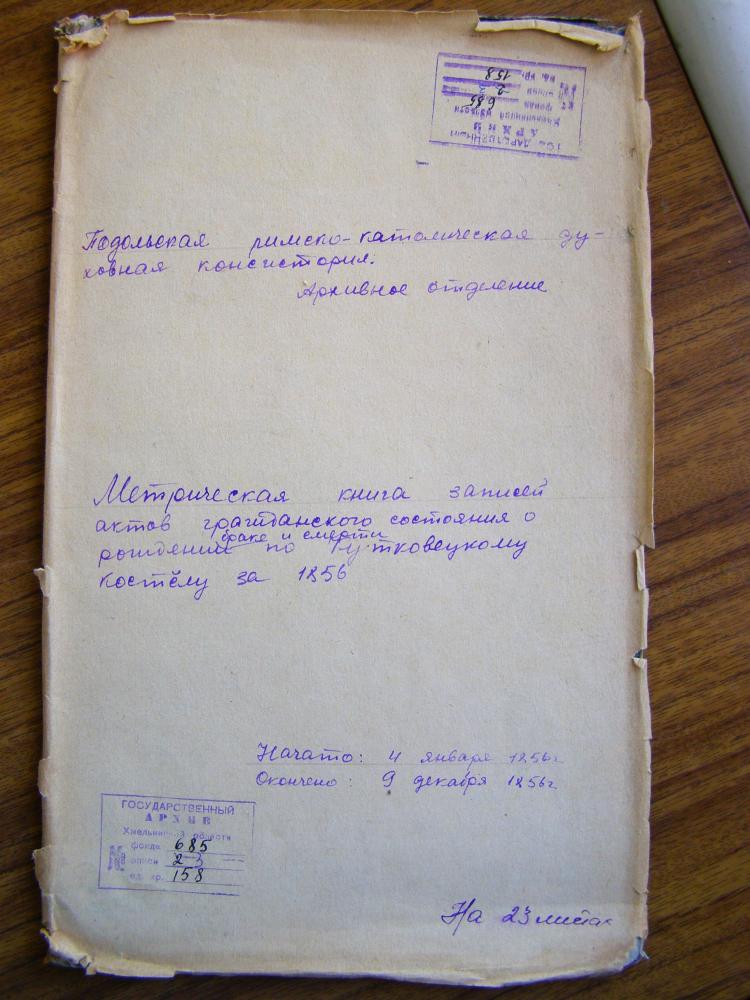 ГОСУДАРСТВЕННЫЙ
АРХИВ
области
фонда 685
описи 2
ед. хр. 158
Подольская римско-католическая ду-
ховная консистория.
Архивное отделение
Метрическая книга записей
актов гражданского состояния о
браке и смерти
рождении по Гутковецкому
костёлу за 1856
Начато: 4 января 1856г.
Окончено: 9 декабря 1856г.
ГОСУДАРСТВЕННЫЙ
АРХИВ
Хмельницкой области
№ фонда 685
описи 2 3
ед. хр. 158
На 23 листах